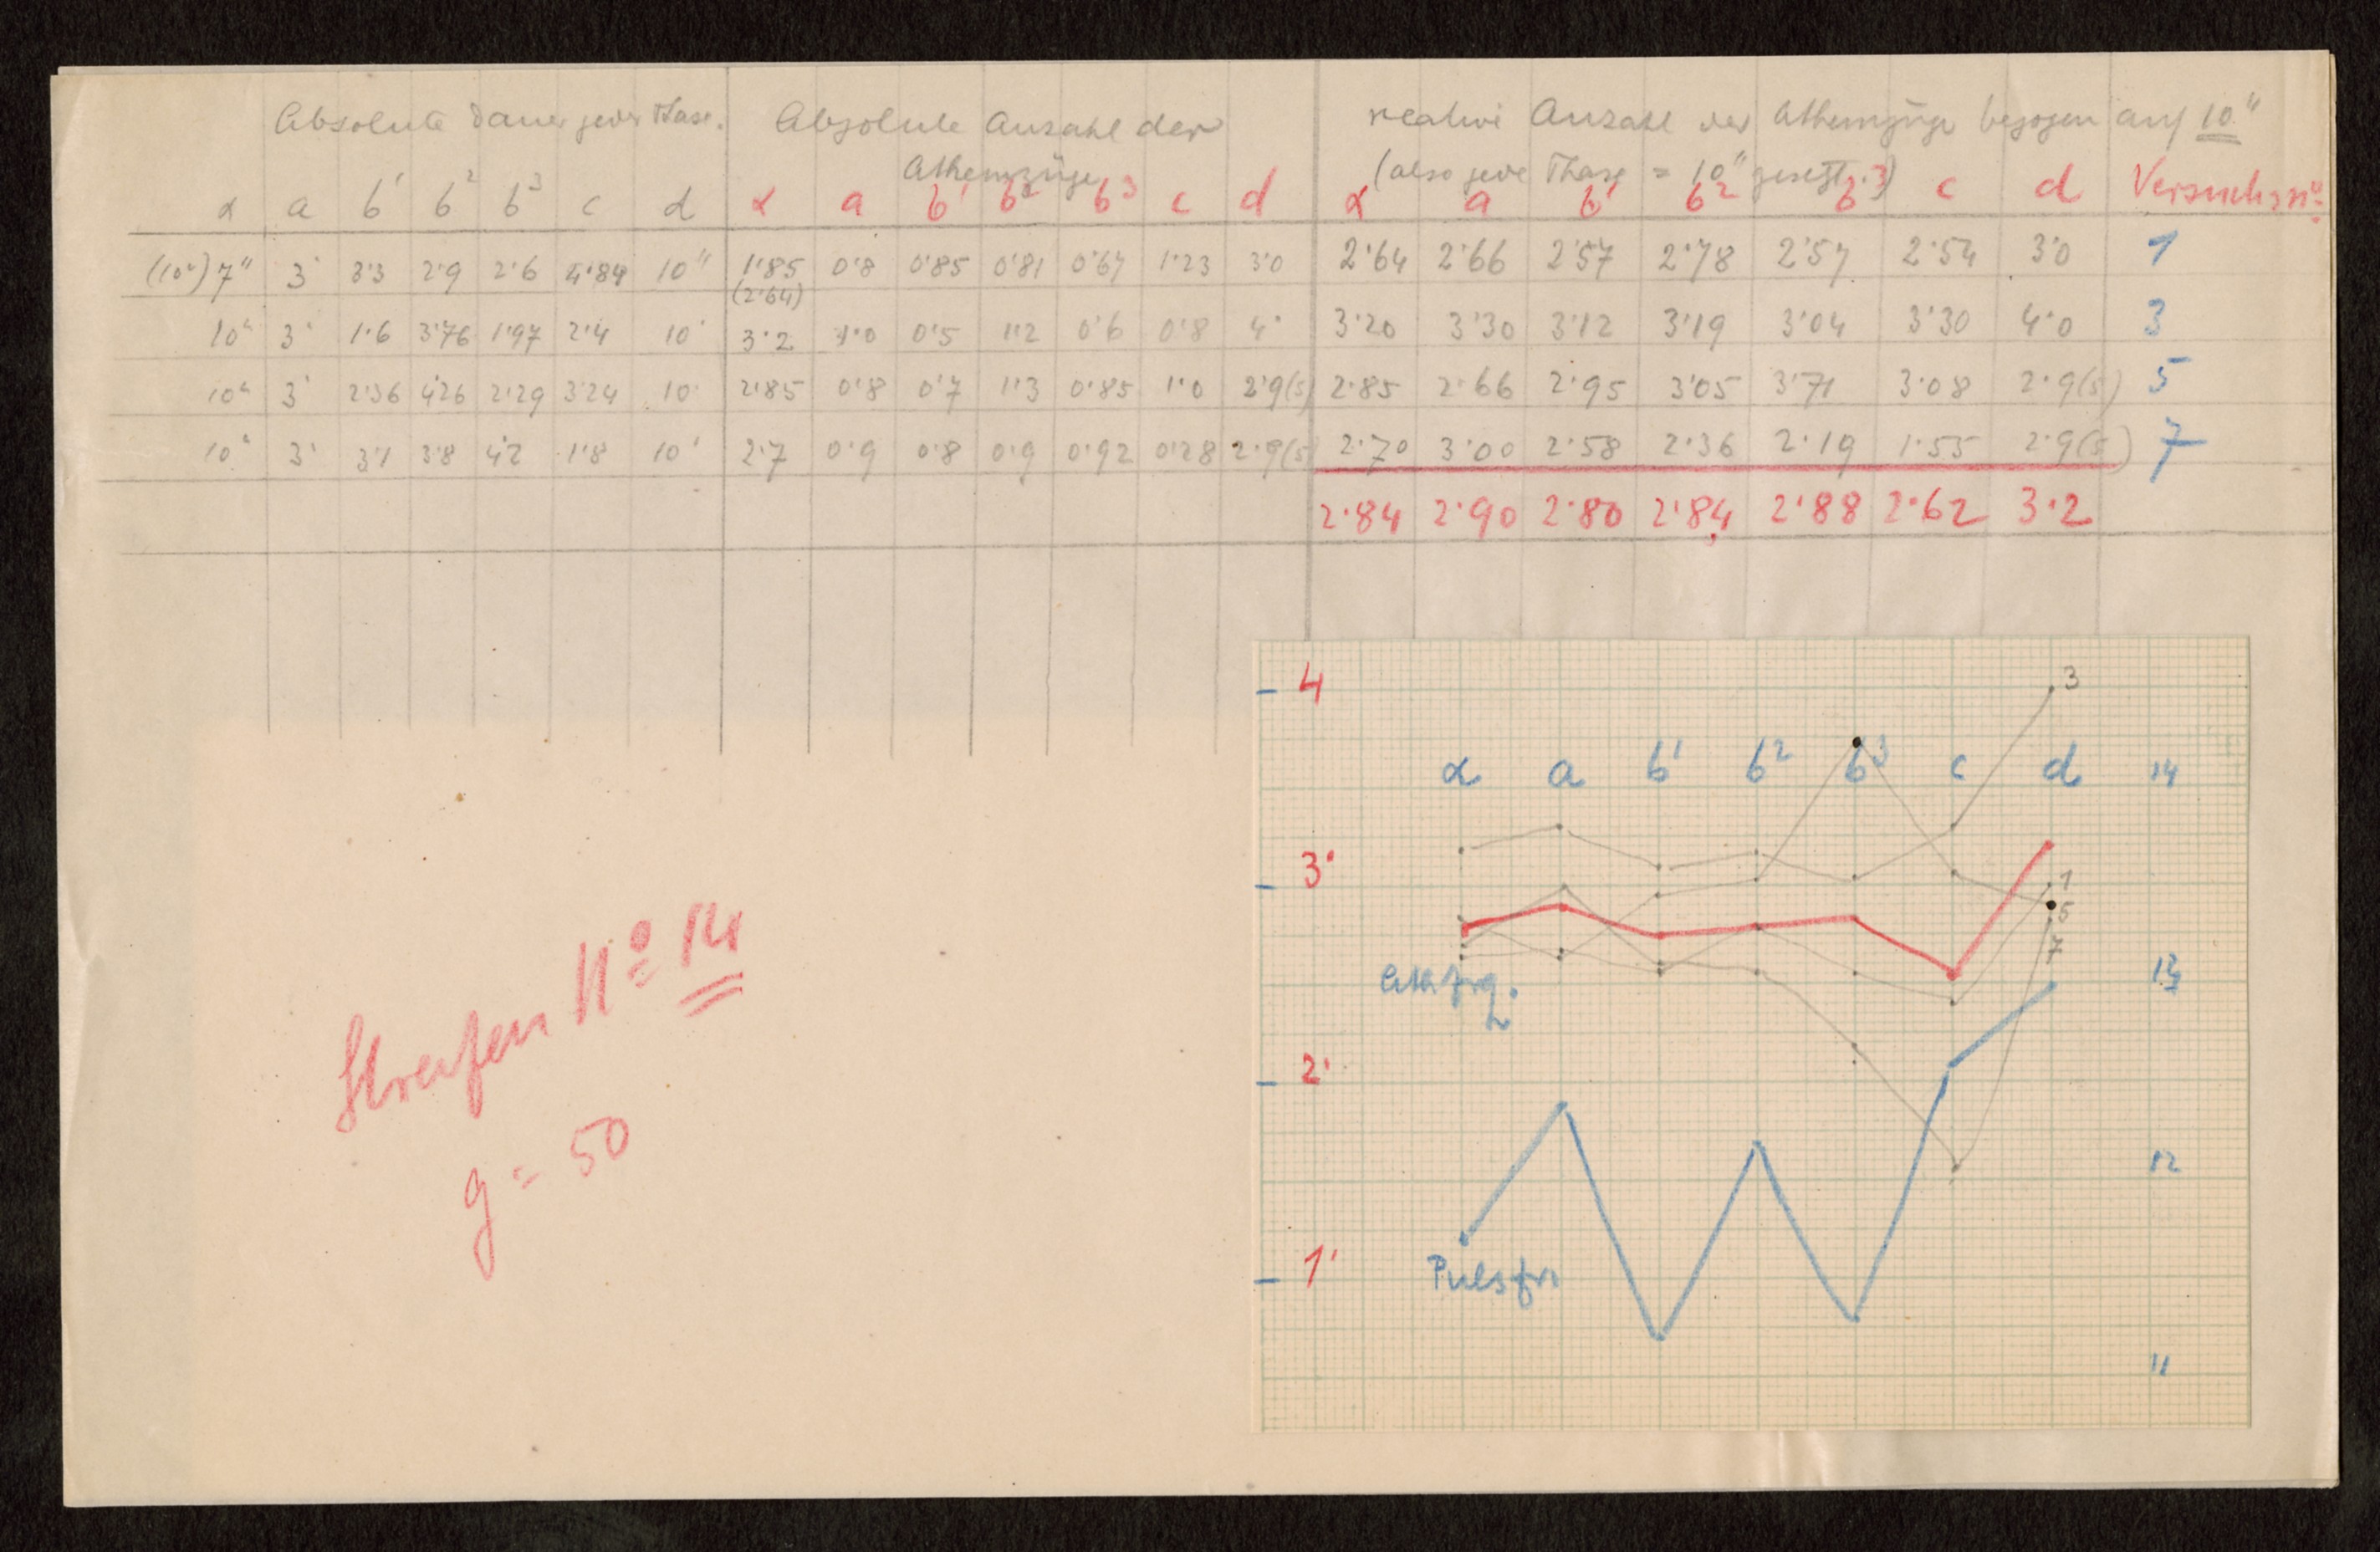 Absolute Dauer jeder Phase. Absolute Anzahl der relative Anzahl der Athemzüge bezogen auf 10"
Athemzüge (also jede Phase = 10" gesetzt.)
α a b¹ b² b³ c d α a b¹ b² b³ c d α a b¹ b² b³ c d Versuchsnº
(10") 7" 3· 3·3 2·9 2·6 4·84 10" 1·85 0·8 0·85 0·81 0·67 1·23 3·0 2·64 2·66 2·57 2·78 2·57 2·54 3·0 1
(2·64)
10" 3· 1·6 3·76 1·97 2·4 10· 3·2 1·0 0·5 1·2 0·6 0·8 4· 3·20 3·30 3·12 3·19 3·04 3·30 4·0 3
10" 3· 2·36 4·26 2·29 3·24 10· 2·85 0·8 0·7 1·3 0·85 1·0 2·9(5) 2·85 2·66 2·95 3·05 3·71 3·08 2·9(5) 5
10" 3· 3·1 3·8 4·2 1·8 10· 2·7 0·9 0·8 0·9 0·92 0·28 2·9(5) 2·70 3·00 2·58 2·36 2·19 1·55 2·9(5) 7
2·84 2·90 2·80 2·84 2·88 2·62 3·2
4 3
α a b¹ b² b³ c d 14
3·
1
5
7
Athfrq. 13
2·
12
1·
Pulsfr.
11
Streifen Nº 14
g = 50